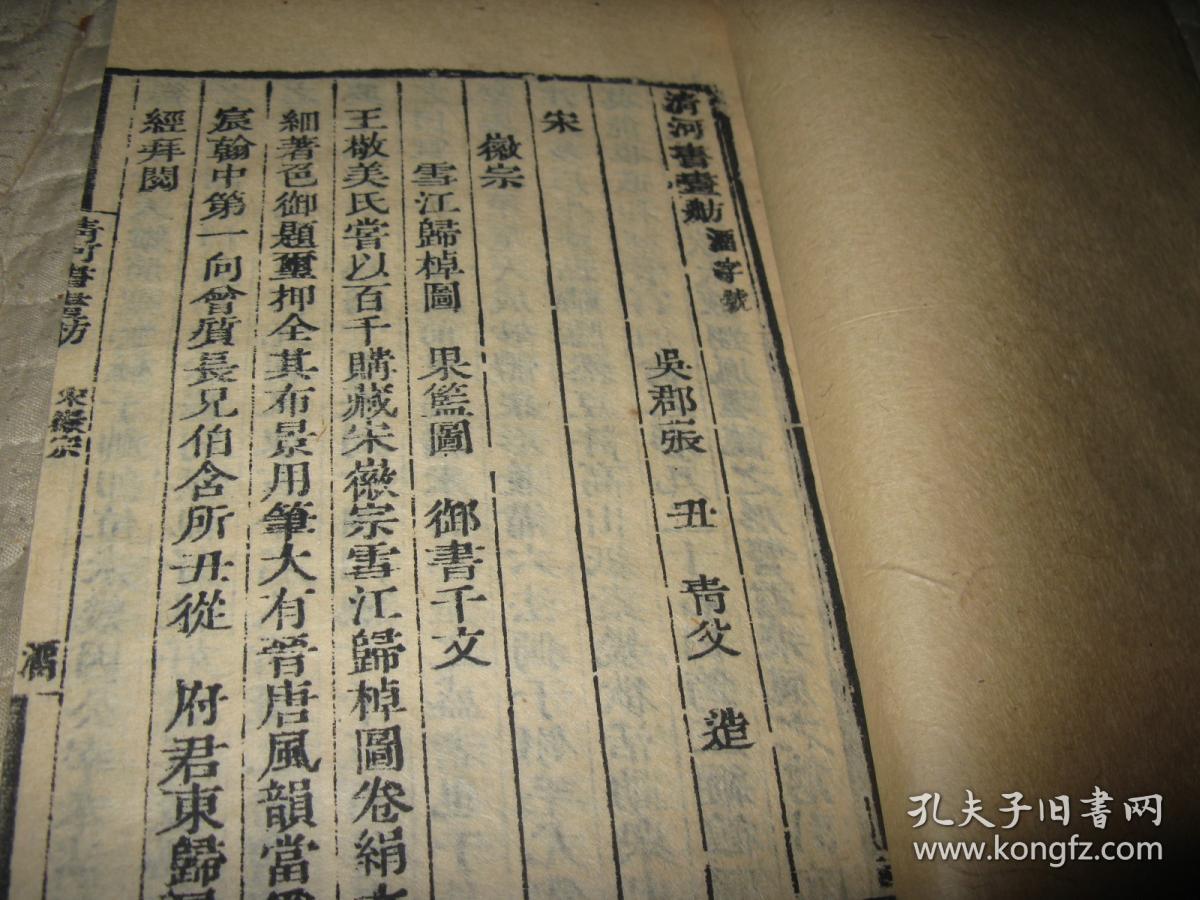 清河書畫舫 酒字號
吳郡張 丑 青父 造
宋
徽宗
雪江歸棹圖 果籃圖 御書千文
王敬美氏嘗以百千購藏宋徽宗雪江歸棹圖卷絹本
細著色御題璽押全其布景用筆大有晉唐風韻當爲
宸翰中第一向曾質長兄伯含所丑從 府君東歸
經拜閱
清河書畫舫 宋徽宗
孔夫子旧书网
www.kongfz.com